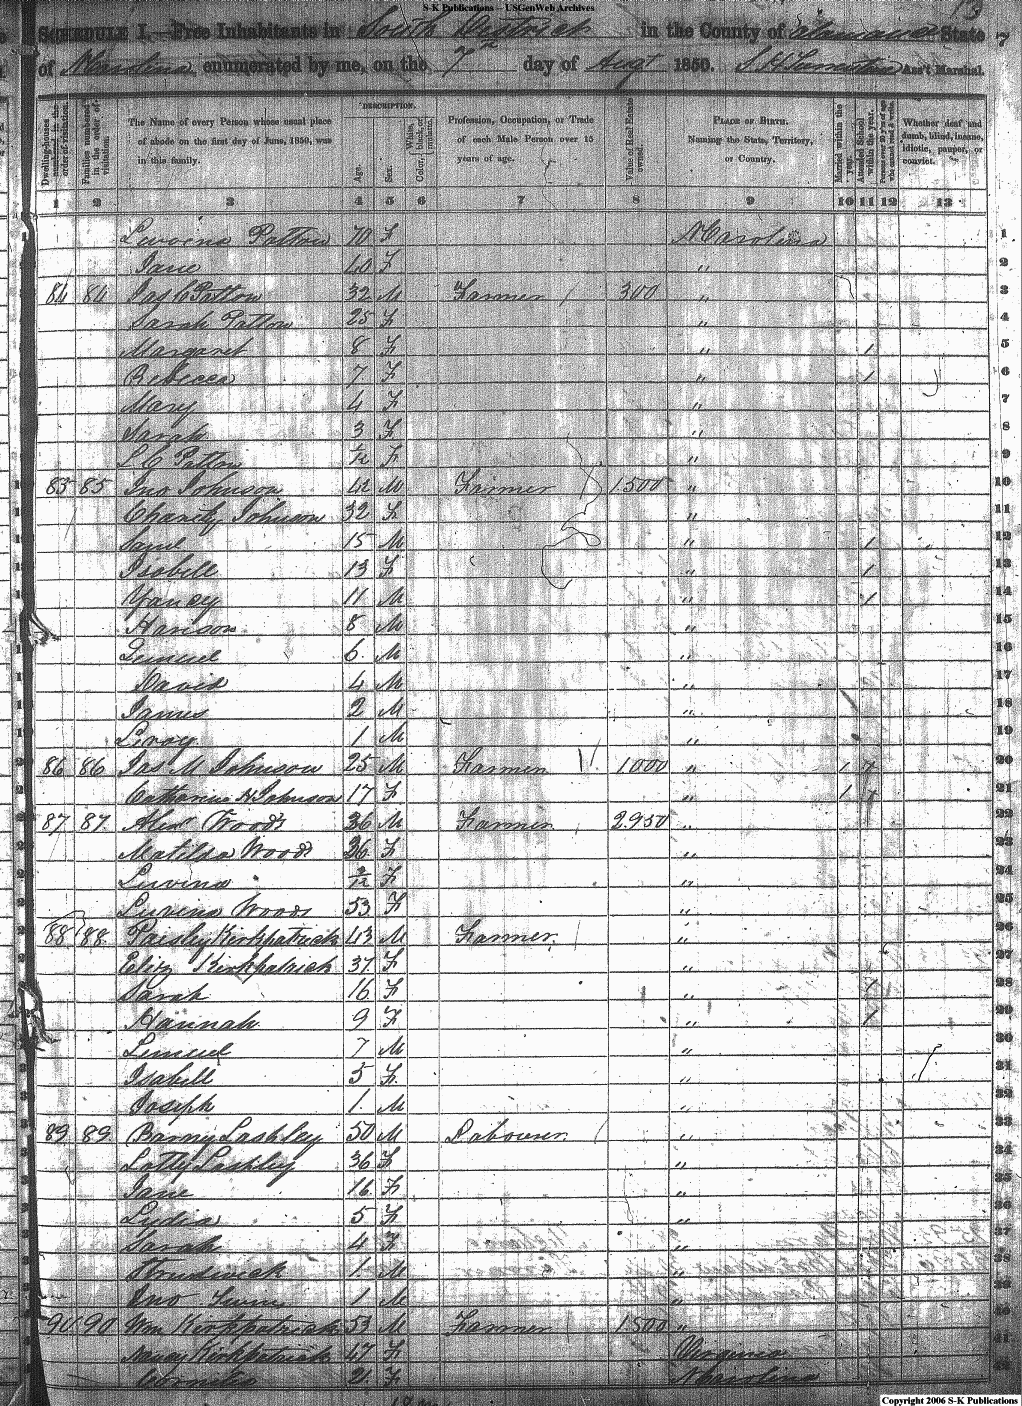 S-K Publications -- USGenWeb Archives
SCHEDULE I.—Free Inhabitants in South District in the County of Alamance State
of N Carolina enumerated by me, on the 7th day of Augt 1850. Ass't Marshal.
7
Dwelling-houses numbered in the order of visitation.
Families numbered in the order of visitation.
The Name of every Person whose usual place of abode on the first day of June, 1850, was in this family.
DESCRIPTION.
Age.
Sex.
Color, White, black, or mulatto.
Profession, Occupation, or Trade of each Male Person over 15 years of age.
Value of Real Estate owned.
PLACE OF BIRTH. Naming the State, Territory, or Country.
Married within the year.
Attended School within the year.
Whether deaf and dumb, blind, insane, idiotic, pauper, or convict.
1 2 3 4 5 6 7 8 9 10 11 12 13
Patton 70 F N Carolina 1
Jane 40 F " 2
84 84 Jas C Patton 32 M Farmer 300 " 3
Sarah Patton 25 F " 4
Margaret 8 F " 1 5
Rebecca 7 F " 1 6
Mary 4 F " 7
Sarah 3 F " 8
S C Patton F " 9
83 85 Jno Johnson 42 M Farmer 1500 " 10
Charity Johnson 32 F " 11
Saml 15 M " 1 12
Isabell 13 F " 1 13
Yancy 11 M " 1 14
Hanson 8 M " 15
Lemuel 6 M " 16
David 4 M " 17
James 2 M " 18
Leroy 1 M " 19
86 86 Jas M Johnson 25 M Farmer 1000 " 1 20
Catharine H Johnson 17 F " 1 21
87 87 Alexr Woods 36 M Farmer 2950 " 22
Matilda Woods 36 F " 23
Luvina 2/12 F " 24
Luvina Woods 53 F " 25
88 88 Paisley Kirkpatrick 43 M Farmer " 26
Eliz Kirkpatrick 37 F " 27
Sarah 16 F " 1 28
Hannah 9 F " 1 29
Lemuel 7 M " 30
Isabell 5 F " 31
Joseph 1 M " 32
89 89 Barny Lashley 50 M Labourer " 33
Letty Lashley 36 F " 34
Jane 16 F " 35
Lydia 5 F " 36
Sarah 4 F " 37
Strudwick 1 M " 38
Jno 1 M " 39
90 90 Wm Kirkpatrick 53 M Farmer 1500 " 40
Nancy Kirkpatrick 47 F Virginia 41
21 F N Carolina 42
Copyright 2006 S-K Publications